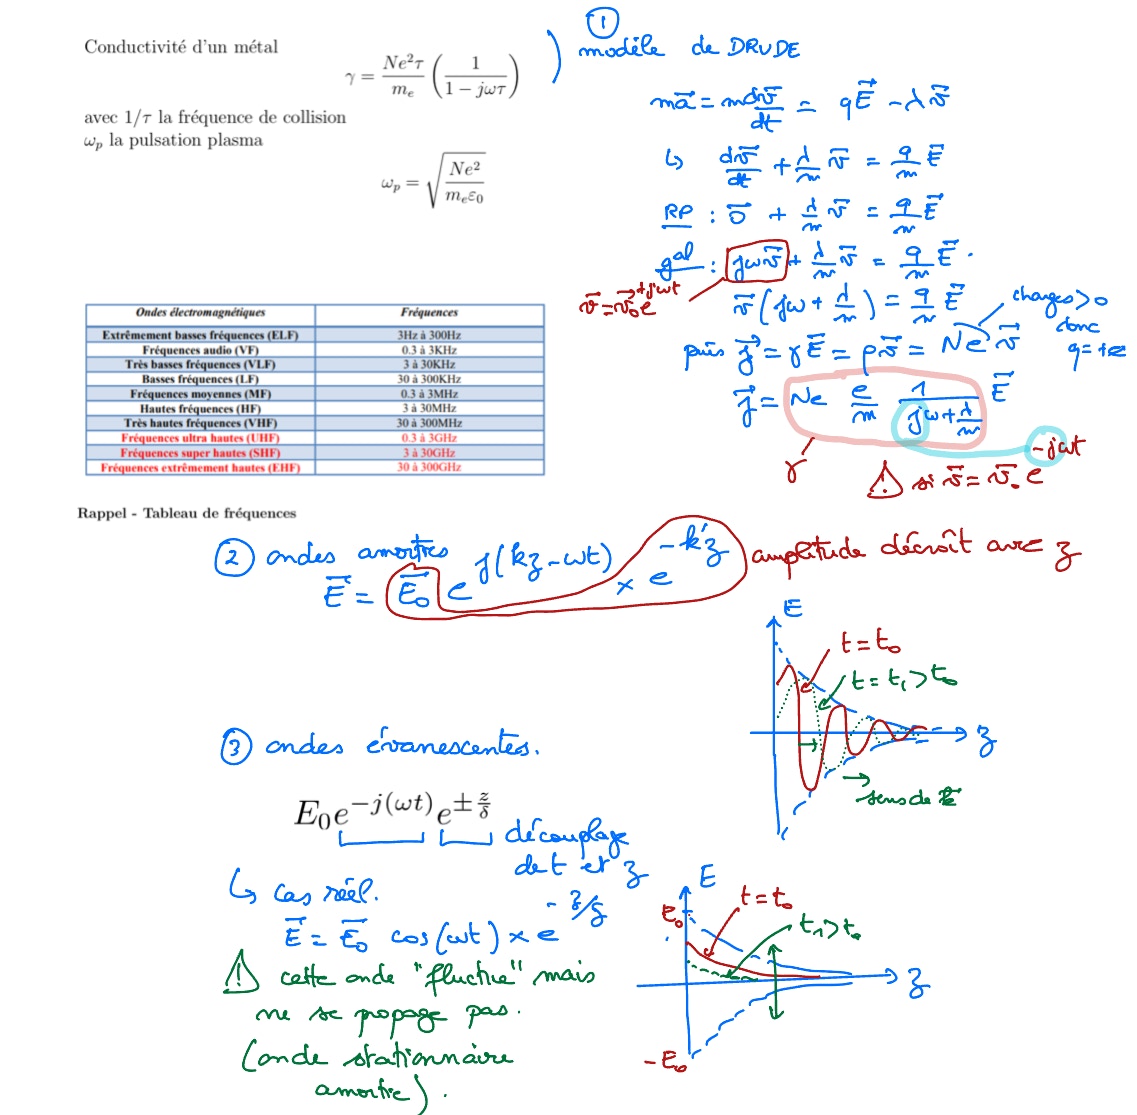 Conductivité d'un métal
γ = Ne²τ/mₑ (1/(1 − jωτ))
avec 1/τ la fréquence de collision
ωₚ la pulsation plasma
ωₚ = √(Ne²/(mₑε₀))
①
modèle de DRUDE
ma⃗ = m dv⃗/dt = qE⃗ − λv⃗
↳ dv⃗/dt + λ/m v⃗ = q/m E⃗
RP : 0⃗ + λ/m v⃗ = q/m E⃗
gal : jωv⃗ + λ/m v⃗ = q/m E⃗.
v⃗ = v⃗₀e^(+jωt)
v⃗(jω + λ/m) = q/m E⃗
charges > 0
donc
q = +e
puis j⃗ = γE⃗ = ρv⃗ = Ne v⃗
j⃗ = Ne e/m 1/(jω + λ/m) E⃗
γ
⚠ si v⃗ = v⃗₀ e^(−jωt)
Ondes électromagnétiques Fréquences
Extrêmement basses fréquences (ELF) 3Hz à 300Hz
Fréquences audio (VF) 0.3 à 3KHz
Très basses fréquences (VLF) 3 à 30KHz
Basses fréquences (LF) 30 à 300KHz
Fréquences moyennes (MF) 0.3 à 3MHz
Hautes fréquences (HF) 3 à 30MHz
Très hautes fréquences (VHF) 30 à 300MHz
Fréquences ultra hautes (UHF) 0.3 à 3GHz
Fréquences super hautes (SHF) 3 à 30GHz
Fréquences extrêmement hautes (EHF) 30 à 300GHz
Rappel - Tableau de fréquences
② ondes amorties
E⃗ = E⃗₀ e^(j(kz−ωt)) × e^(−k'z) amplitude décroît avec z
E
t = t₀
t = t₁ > t₀
z
sens de k⃗
③ ondes évanescentes.
E₀e^(−j(ωt)) e^(±z/δ)
découplage
de t et z
↳ cas réel.
E⃗ = E⃗₀ cos(ωt) × e^(−z/δ)
⚠ cette onde "fluctue" mais
ne se propage pas.
(onde stationnaire
amortie).
E
E₀
t = t₀
t₁ > t₀
z
−E₀